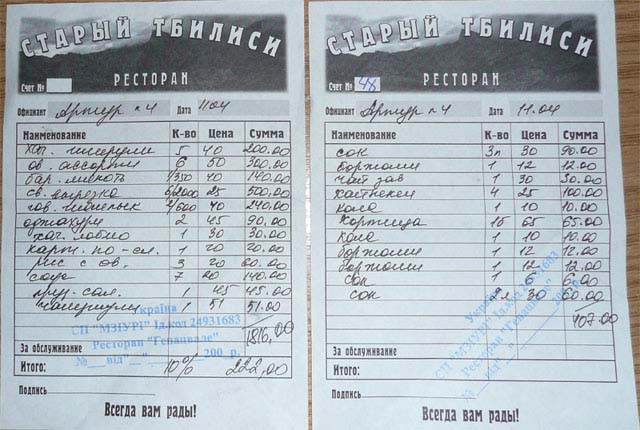 СТАРЫЙ ТБИЛИСИ
РЕСТОРАН
Счет №
Официант Артур №4 Дата 11.04
Наименование К-во Цена Сумма
5 40 200.00
ов. ассорти 6 50 300.00
бар. мякоть 1/350 40 140.00
св. вырезка 6/2000 25 500.00
2/600 40 240.00
2 45 90.00
лобио 1 30 30.00
карт. по-сел. 1 20 20.00
рис с ов. 3 20 60.00
соус 7 20 140.00
сал. 1 45 45.00
1 51 51.00
1816,00
Україна
СП "МЗІУРІ" Ід.код 24931683
Ресторан "Генацвале"
№ від" " 200 р.
За обслуживание
Итого: 10% 222,00
Подпись
Всегда вам рады!
СТАРЫЙ ТБИЛИСИ
РЕСТОРАН
Счет № 48
Официант Артур №4 Дата 11.04
Наименование К-во Цена Сумма
сок 3л 30 90.00
боржоми 1 12 12.00
чай зав 1 30 30.00
4 25 100.00
кола 1 10 10.00
1б 65 65.00
кола 1 10 10.00
боржоми 1 12 12.00
боржоми 1 12 12.00
сок 1 6 6.00
сок 2л 30 60.00
407.00
Україна
СП "МЗІУРІ" Ід.код 24931683
Ресторан "Генацвале"
За обслуживание
Итого:
Подпись
Всегда вам рады!